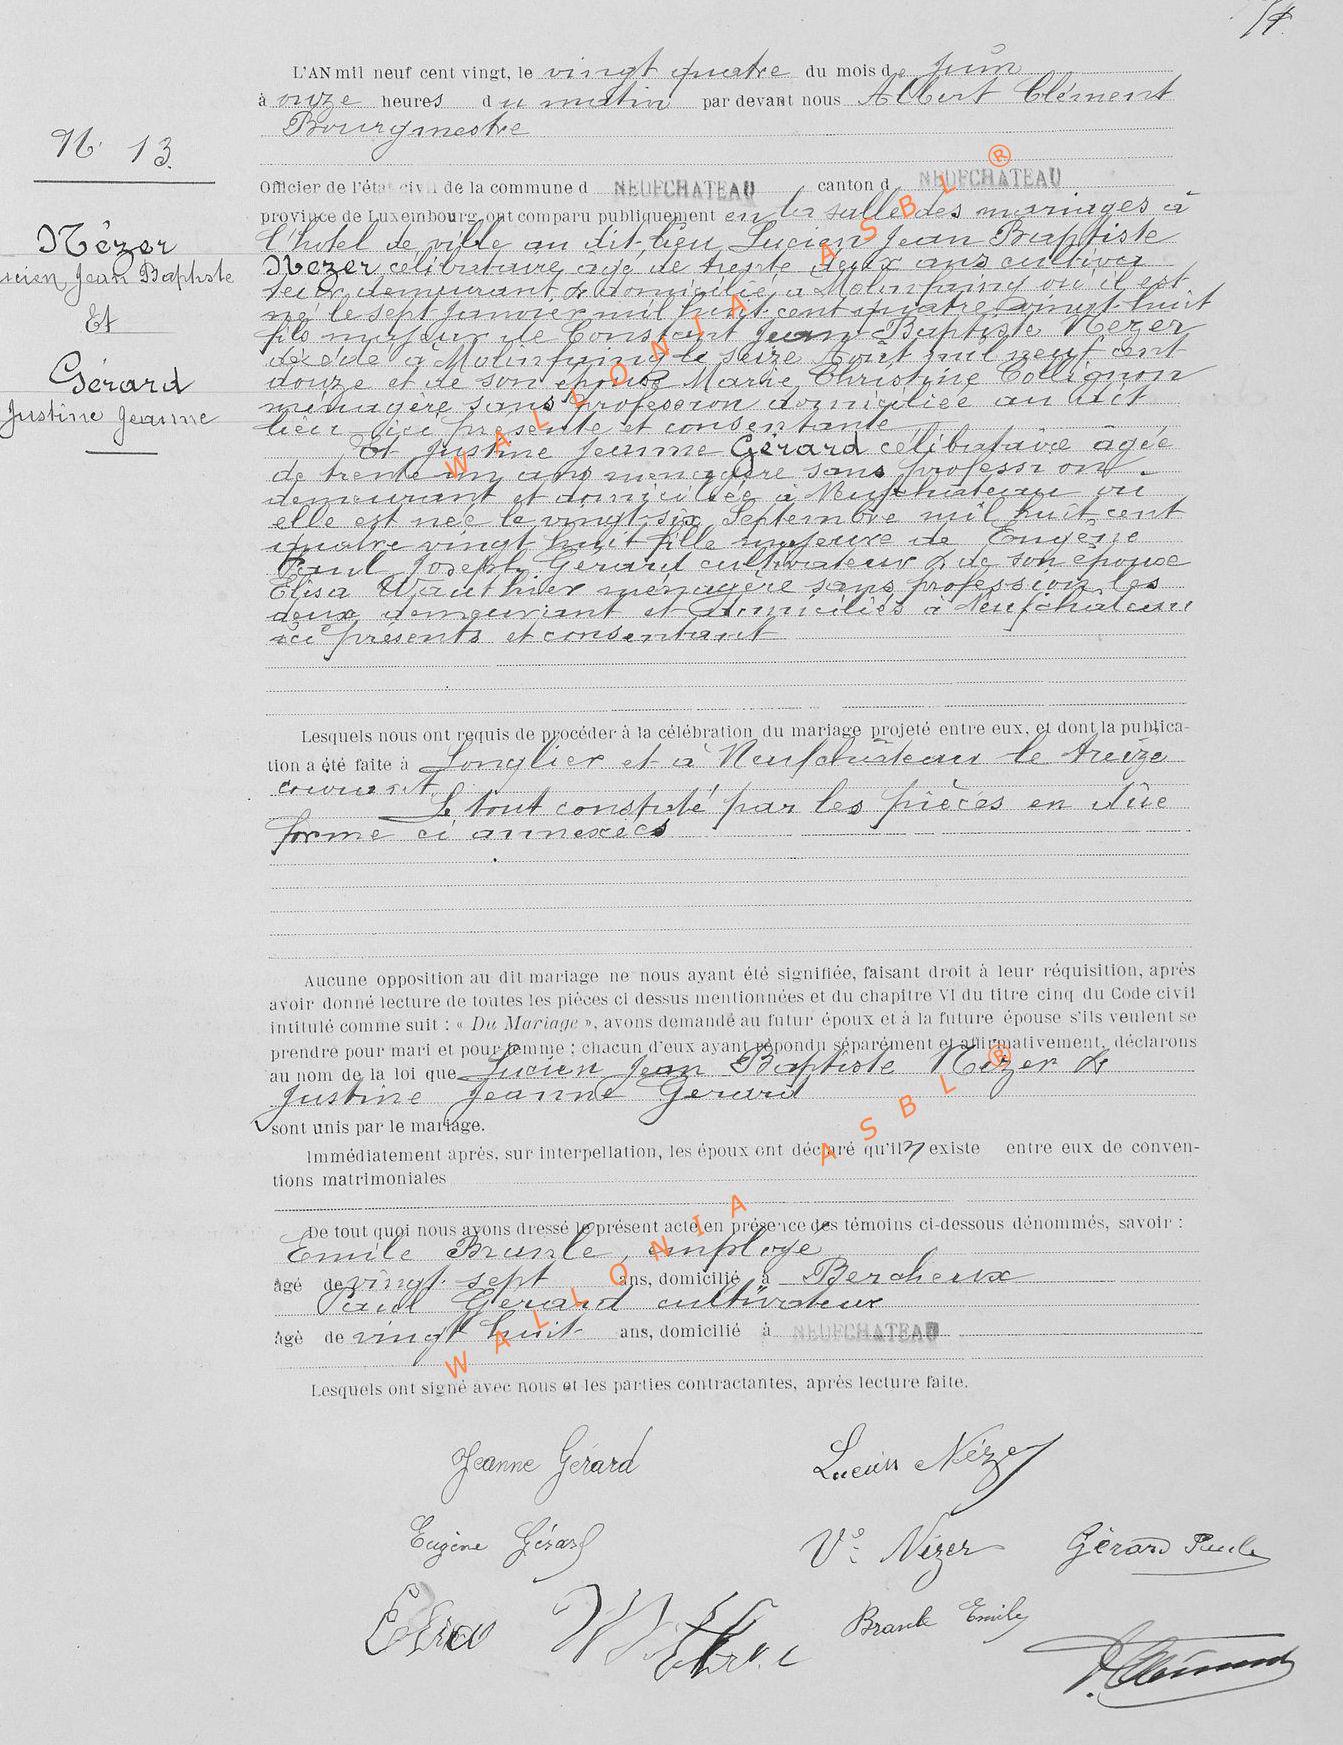 N° 13.
Nézer
Lucien Jean Baptiste
Et
Gérard
Justine Jeanne
L'AN mil neuf cent vingt, le vingt quatre du mois de juin
à onze heures du matin par devant nous Albert Clément
Bourgmestre
Officier de l'état civil de la commune d NEUFCHATEAU canton d NEUFCHATEAU
province de Luxembourg ont comparu publiquement en la salle des mariages à
l'hotel de ville au dit-lieu Lucien Jean Baptiste
Nezer célibataire âgé de trente deux ans cultiva
teur demeurant & domicilié à Molinfaing où il est
né le sept Janvier mil huit cent quatre vingt huit
fils majeur de Constant Jean Baptiste Nezer
décédé à Molinfaing le seize Aout mil neuf cent
douze et de son épouse Marie Christine Collignon
ménagère sans profession domiciliée au dit
lieu ici présente et consentante
Et Justine Jeanne Gérard célibataire âgée
de trente un ans menagère sans profession
demeurant et domiciliée à Neufchâteau où
elle est née le vingt-six Septembre mil huit cent
quatre vingt huit fille majeure de Eugène
Paul Joseph Gérard cultivateur & de son épouse
Elisa Wauthier ménagère sans profession les
deux demeurant et domiciliés à Neufchâteau
ici présents et consentant
Lesquels nous ont requis de procéder à la célébration du mariage projeté entre eux, et dont la publica-
tion a été faite à Longlier et à Neufchâteau le treize
courant
Le tout constaté par les pièces en dûe
forme ci annexées
Aucune opposition au dit mariage ne nous ayant été signifiée, faisant droit à leur réquisition, après
avoir donné lecture de toutes les pièces ci dessus mentionnées et du chapitre VI du titre cinq du Code civil
intitulé comme suit : « Du Mariage », avons demandé au futur époux et à la future épouse s'ils veulent se
prendre pour mari et pour femme ; chacun d'eux ayant répondu séparément et affirmativement, déclarons
au nom de la loi que Lucien Jean Baptiste Nezer &
Justine Jeanne Gérard
sont unis par le mariage.
Immédiatement après, sur interpellation, les époux ont déclaré qu'il n existe entre eux de conven-
tions matrimoniales
De tout quoi nous avons dressé le présent acte en présence des témoins ci-dessous dénommés, savoir :
Emile Braule, employé
âgé de vingt-sept ans, domicilié à Bercheux
Paul Gérard cultivateur
âgé de vingt huit ans, domicilié à NEUFCHATEAU
Lesquels ont signé avec nous et les parties contractantes, après lecture faite.
Jeanne Gérard Lucien Nézer
Eugène Gérard Ve Nézer Gérard Paul
Elisa
A Clément
WALLONIA ASBL ®
WALLONIA ASBL ®